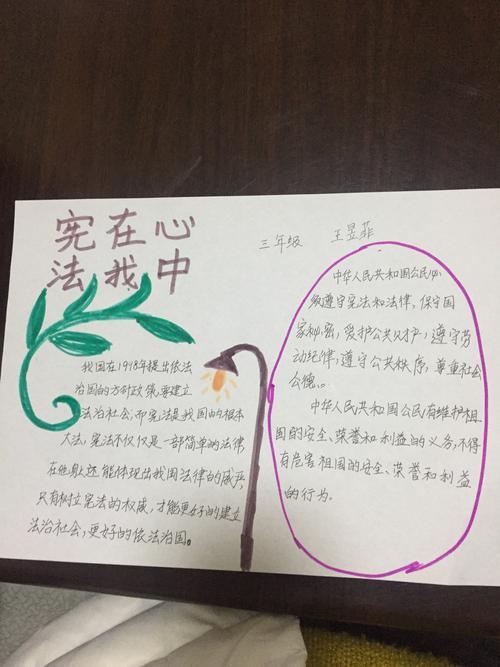 宪在心
法我中
三年级 王昱菲
我国在1978年提出依法
治国的方针政策,要建立
法治社会,而宪法是我国的根本
大法,宪法不仅仅是一部简单的法律
在他身上还能体现出我国法律的威严,
只有树立宪法的权威,才能更好的建立
法治社会,更好的依法治国。
中华人民共和国公民必
须遵守宪法和法律,保守国
家秘密,爱护公共财产,遵守劳
动纪律,遵守公共秩序,尊重社会
公德。
中华人民共和国公民有维护祖
国的安全、荣誉和利益的义务,不得
有危害祖国的安全、荣誉和利益
的行为。